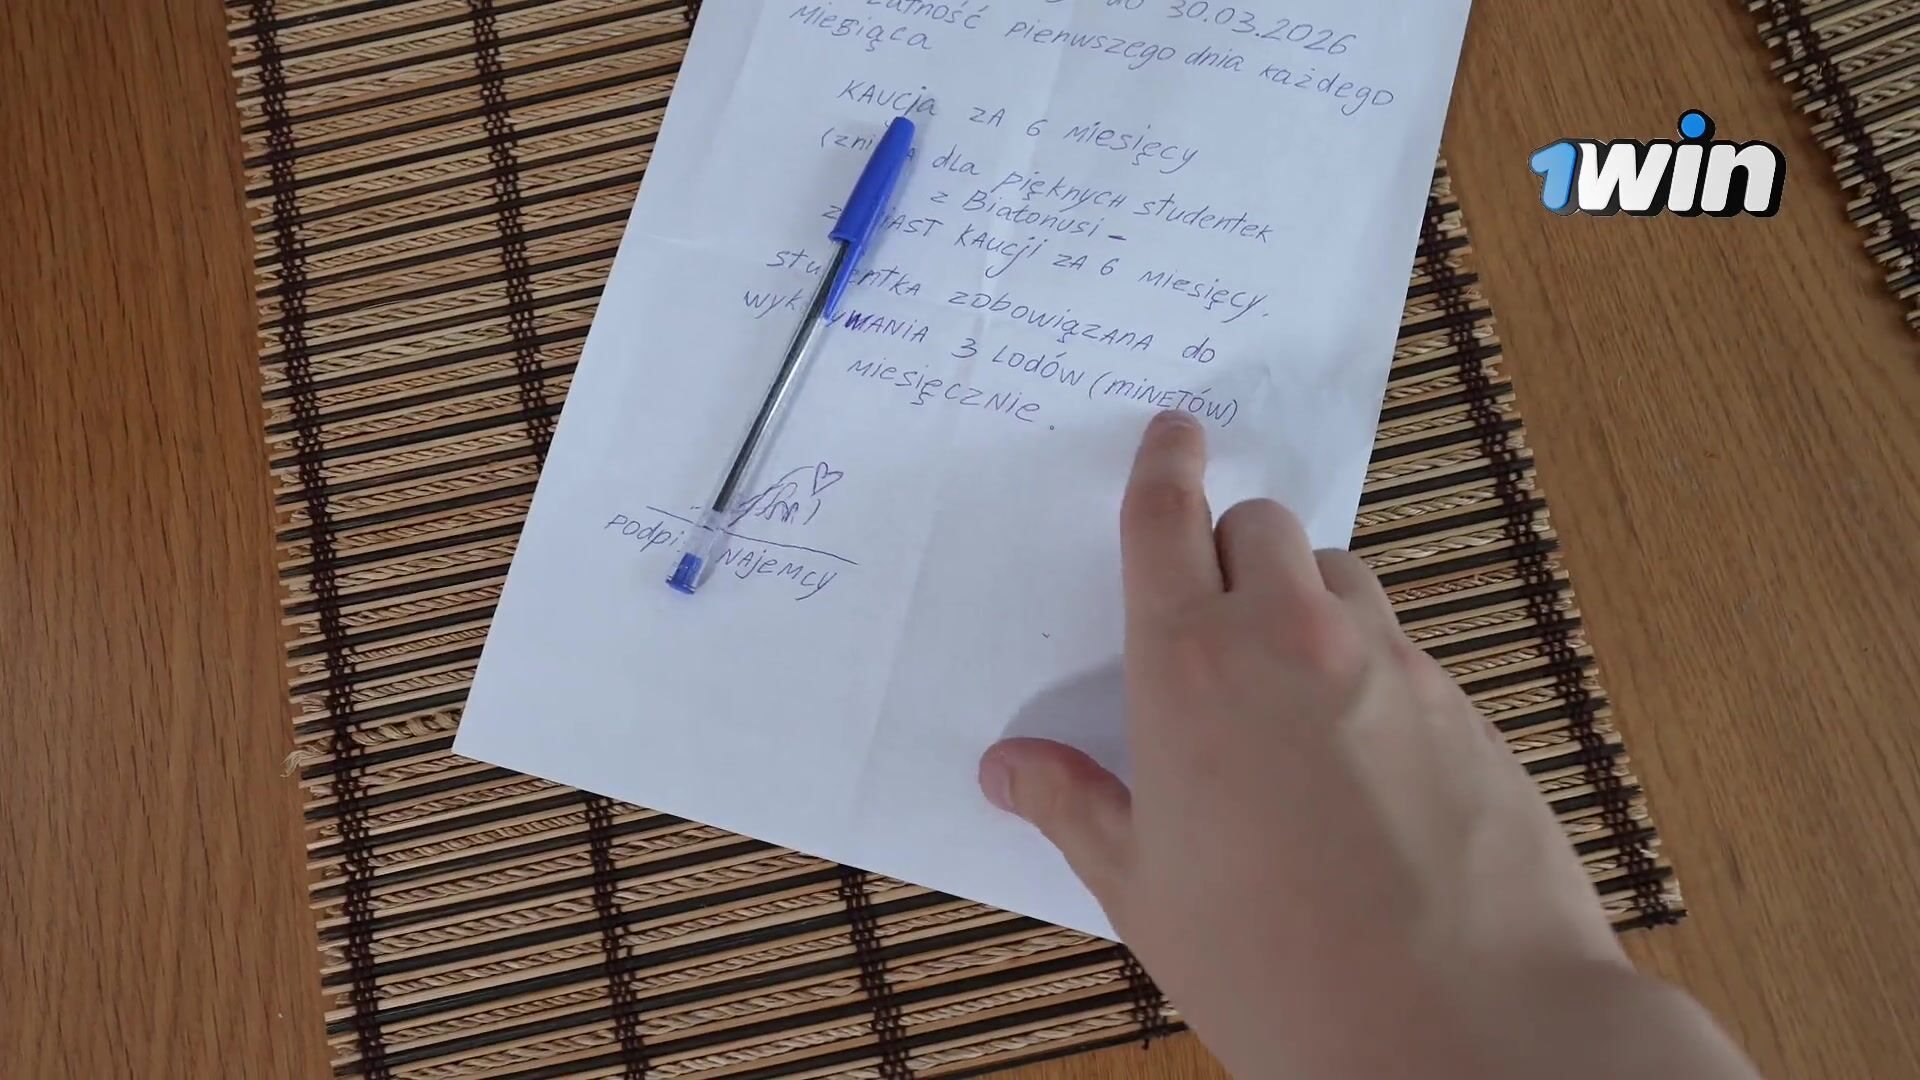 do 30.03.2026
pierwszego dnia każdego
Miesiąca
KAucja ZA 6 Miesięcy
dla pięknych studentek
z Białorusi -
KAucji ZA 6 Miesięcy.
zobowiązana do
3 Lodów (miNETÓW)
Miesięcznie.
NAjemcy
1win